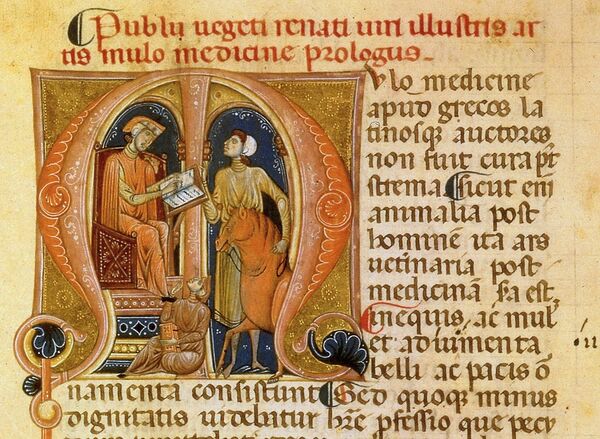 Publij uegeti renati uiri illustris ar
tis mulo medicine prologus.
Mulo medicine
apud grecos la
tinosq auctores
non fuit cura pt
strema Sicut eni
animalia post
hominē ita ars
uetinaria post
medicinā sa est
inequis. ac mul
et adiumenta
belli ac pacis o
namenta consistunt Sed quoque minus
dignitatis uidebatur hr̄e pfessio que pecu